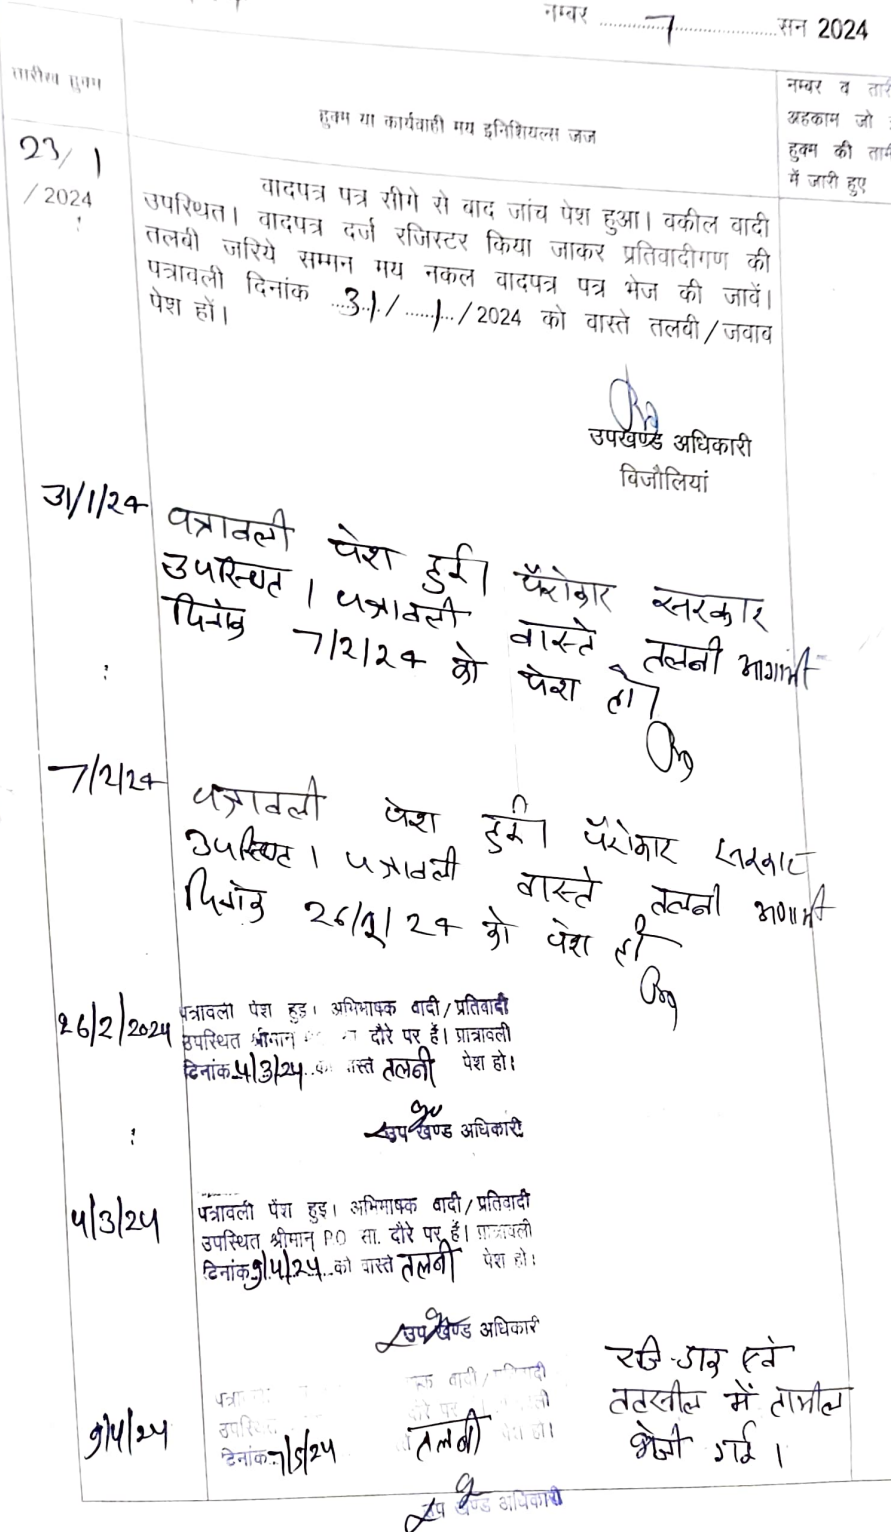 नम्बर ..............7..................सन 2024
तारीख हुक्म
हुक्म या कार्यवाही मय इनिशियल्स जज
नम्बर व तारी
अहकाम जो
हुक्म की तामी
में जारी हुए
23/1
/2024
वादपत्र पत्र सीगे से बाद जांच पेश हुआ। वकील वादी
उपस्थित। वादपत्र दर्ज रजिस्टर किया जाकर प्रतिवादीगण की
तलवी जरिये सम्मन मय नकल वादपत्र पत्र भेज की जावें।
पत्रावली दिनांक 31/1/2024 को वास्ते तलवी/जवाव
पेश हों।
उपखण्ड अधिकारी
विजौलियां
31/1/24
पत्रावली पेश हुई। पैरोकार सरकार
उपस्थित। पत्रावली वास्ते तलबी आगामी
दिनांक 7/2/24 को पेश हो।
7/2/24
पत्रावली पेश हुई। पैरोकार सरकार
उपस्थित। पत्रावली वास्ते तलबी आगामी
दिनांक 26/2/24 को पेश हो
26/2/2024
पत्रावली पेश हुइ। अभिभाषक वादी/प्रतिवादी
उपस्थित श्रीमान दौरे पर हैं। प्रात्रावली
दिनांक 4/3/24 को वास्ते तलबी पेश हो।
उप खण्ड अधिकारी
4/3/24
पत्रावली पेश हुइ। अभिमाषक वादी/प्रतिवादी
उपस्थित श्रीमान् P.O सा. दौरे पर हैं। प्रात्रावली
दिनांक 9/4/24 को वास्ते तलबी पेश हो।
उप खण्ड अधिकारी
रजि-डाक से
तहसील में तामील
भेजी गई।
9/4/24
वादी/प्रतिवादी
उपस्थित
दिनांक 7/5/24 तलबी पेश हो।
उप खण्ड अधिकारी